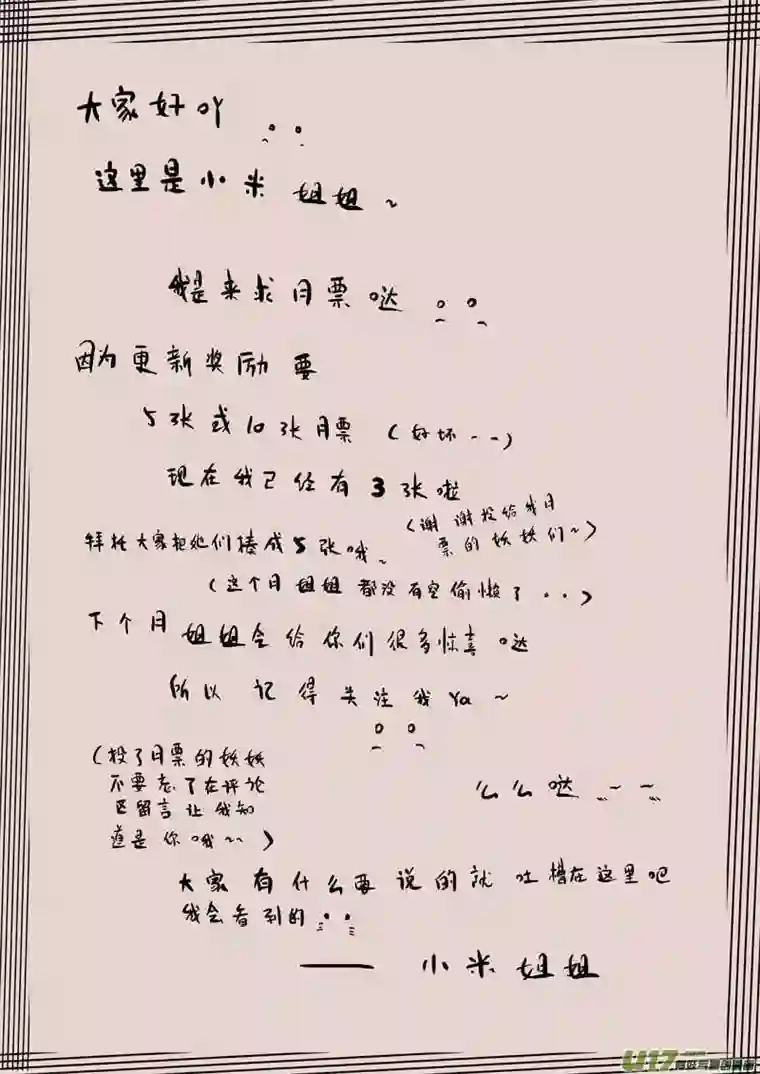 大家好吖
这里是小米姐姐~
我是来求月票哒
因为更新奖励要
5张或10张月票（好坏--）
现在我已经有3张啦
（谢谢投给我月
票的妖妖们~）
拜托大家把她们揍成5张哦~
（这个月姐姐都没有空偷懒了..）
下个月姐姐会给你们很多惊喜哒
所以记得关注我Ya~
（投了月票的妖妖
不要忘了在评论
区留言让我知
道是你哦~~）
么么哒~~
大家有什么要说的就吐槽在这里吧
我会看到的
—— 小米姐姐
U17